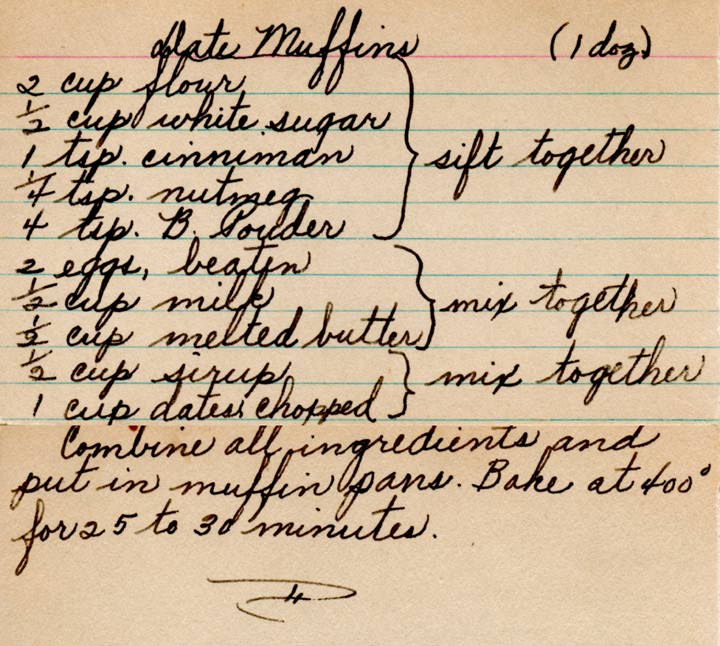 Date Muffins (1 doz.)
2 cup flour
1/2 cup white sugar
1 tsp. cinniman
1/4 tsp. nutmeg
4 tsp. B. Pouder
sift together
2 eggs, beatin
1/2 cup milk
1/2 cup melted butter
mix together
1/2 cup sirup
1 cup dates chopped
mix together
Combine all ingredients and
put in muffin pans. Bake at 400°
for 25 to 30 minutes.